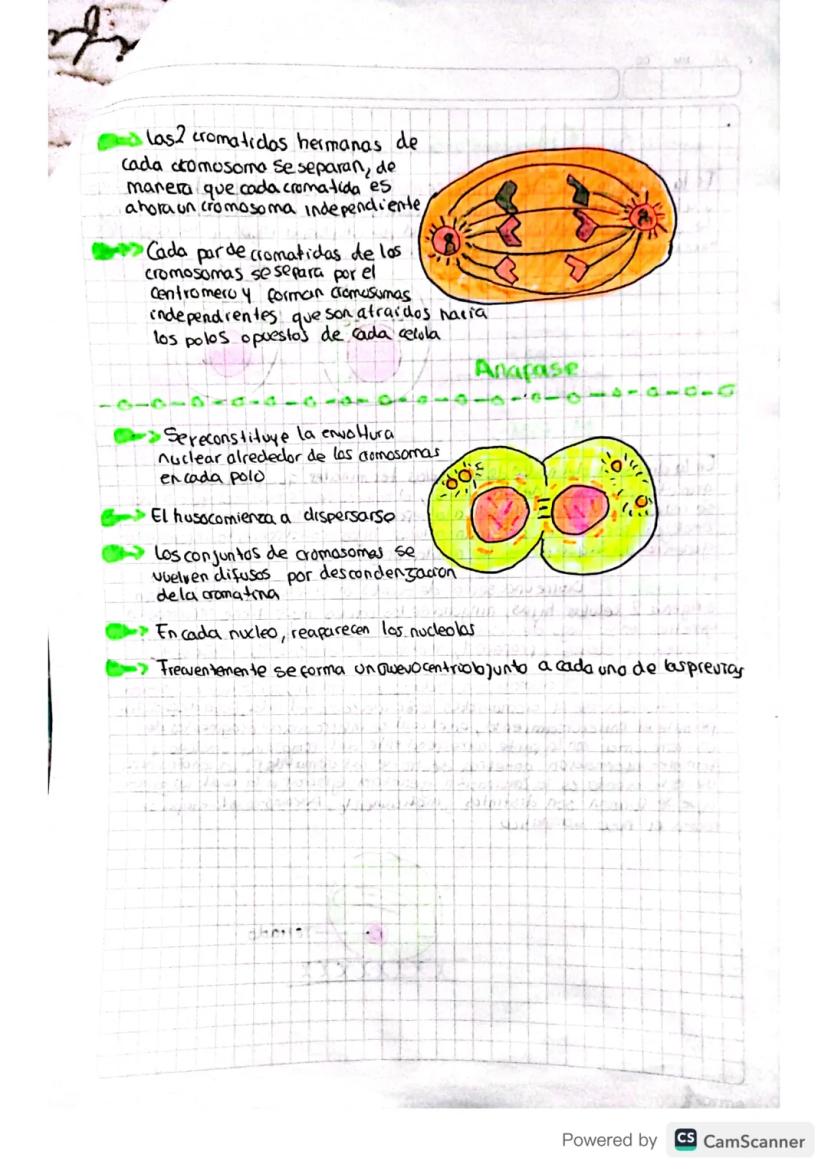 Las 2 cromatidas hermanas de
cada cromosoma se separan, de
manera que cada cromatida es
ahora un cromosoma independiente
Cada par de cromatidas de los
cromosomas se separa por el
centromero y forman cromosomas
independientes que son atraidos hacia
los polos opuestos de cada celula
Anafase
Se reconstituye la envoltura
nuclear alrededor de los cromosomas
en cada polo
El huso comienza a dispersarse
Los conjuntos de cromosomas se
vuelven difusos por descondenzacion
de la cromatina
En cada nucleo, reaparecen los nucleolos
Frecuentemente se forma un nuevo centriolo junto a cada uno de las previas
Powered by CS CamScanner